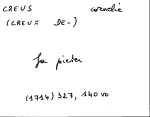 CREUS cornelie
(CREUX DE-)
fa pieter
(1714) 327, 140 vo